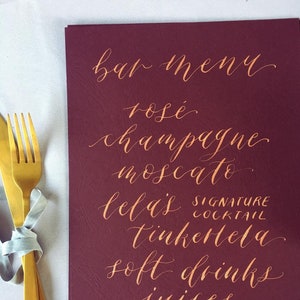 bar menu
rosé
champagne
moscato
lela's SIGNATURE COCKTAIL
tinkerlela
soft drinks
juices